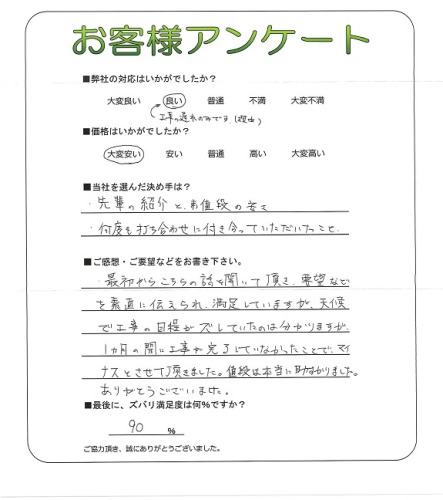 お客様アンケート
■弊社の対応はいかがでしたか?
大変良い 良い 普通 不満 大変不満
工事の遅れのみです(理由)
■価格はいかがでしたか?
大変安い 安い 普通 高い 大変高い
■当社を選んだ決め手は?
・先輩の紹介と、値段の安さ
・何度も打ち合わせに付き合っていただいたこと。
■ご感想・ご要望などをお書き下さい。
・最初からこちらの話を聞いて頂き、要望など
を素直に伝えられ、満足していますが、天候
で工事の日程がズレていたのは分かりますが、
1ヵ月の間に工事が完了していなかったことで、マイ
ナスとさせて頂きました。値段は本当に助かりました。
ありがとうございました。
■最後に、ズバリ満足度は何%ですか?
90 %
ご協力頂き、誠にありがとうございました。